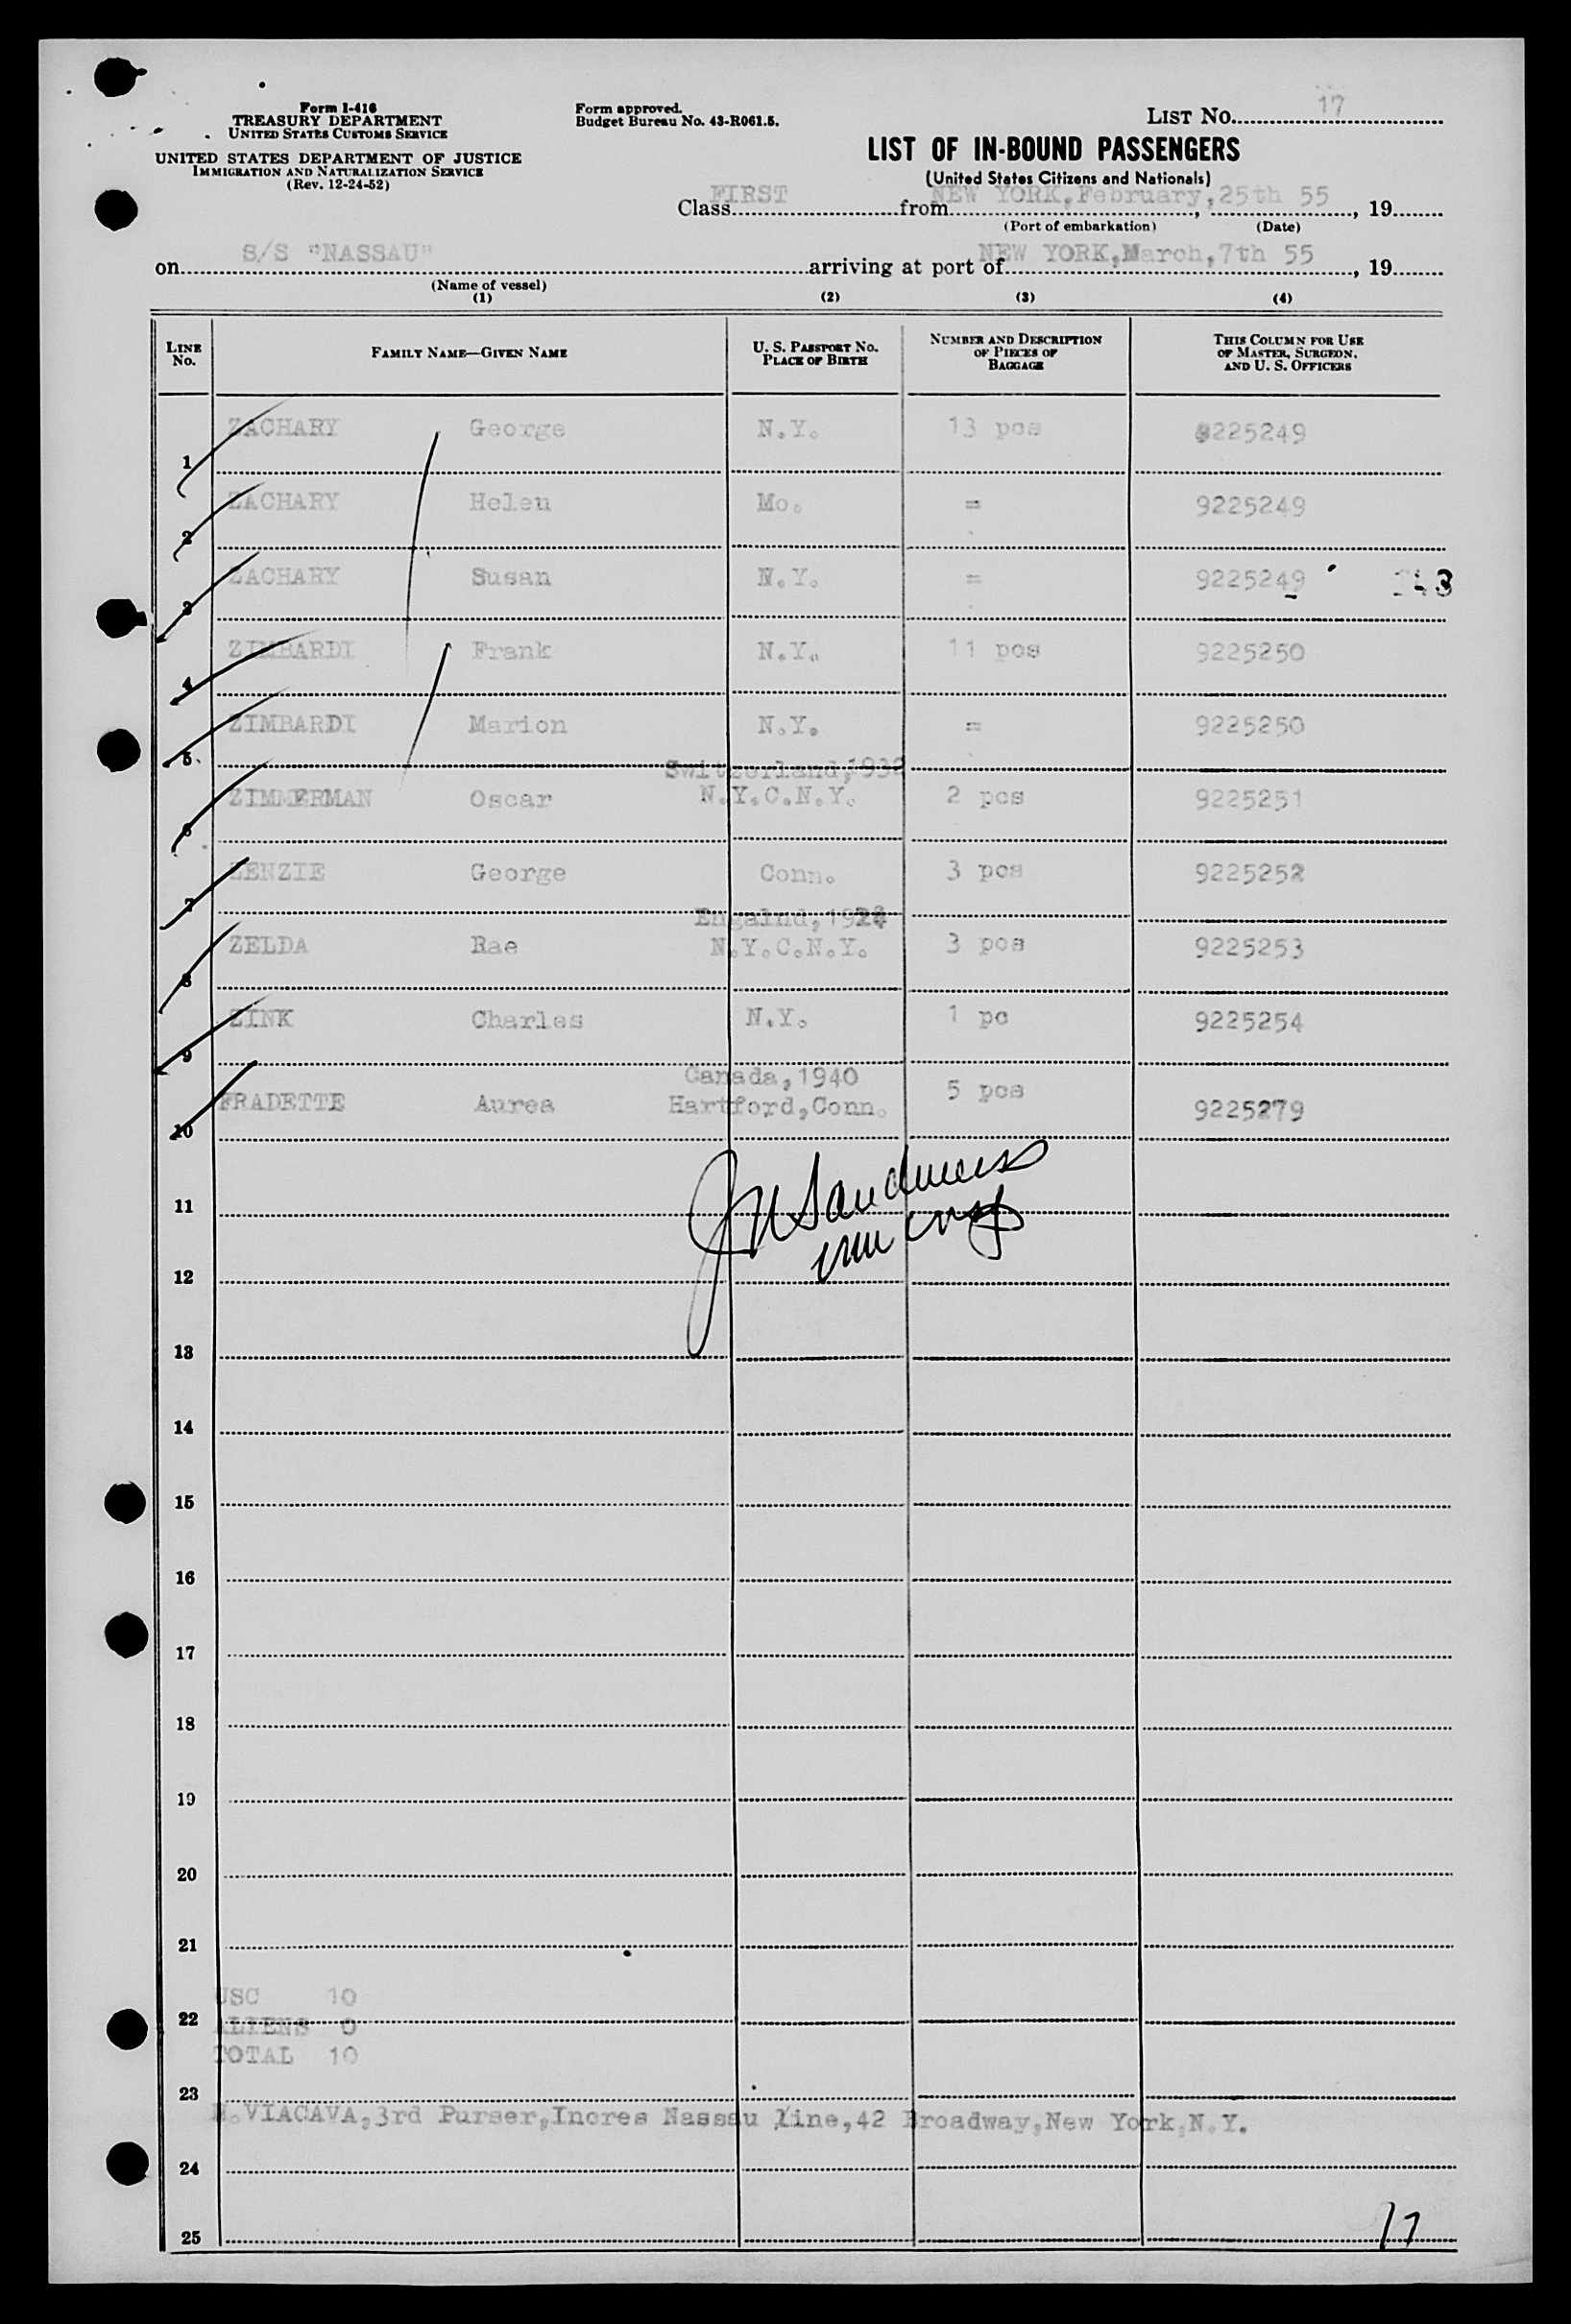 Form I-416
TREASURY DEPARTMENT
UNITED STATES CUSTOMS SERVICE
UNITED STATES DEPARTMENT OF JUSTICE
IMMIGRATION AND NATURALIZATION SERVICE
(Rev. 12-24-52)
Form approved.
Budget Bureau No. 43-R061.5.
LIST NO. 17
LIST OF IN-BOUND PASSENGERS
(United States Citizens and Nationals)
Class FIRST from NEW YORK, February, 25th 55, 19
(Port of embarkation) (Date)
on S/S "NASSAU" arriving at port of NEW YORK, March, 7th 55, 19
(Name of vessel)
(1) (2) (3) (4)
LINE NO. FAMILY NAME—GIVEN NAME U. S. PASSPORT NO. PLACE OF BIRTH NUMBER AND DESCRIPTION OF PIECES OF BAGGAGE THIS COLUMN FOR USE OF MASTER, SURGEON, AND U. S. OFFICERS
1 ZACHARY George N.Y. 13 pcs 9225249
2 ZACHARY Helen Mo. = 9225249
3 ZACHARY Susan N.Y. = 9225249
4 ZIMBARDI Frank N.Y. 11 pcs 9225250
5 ZIMBARDI Marion N.Y. = 9225250
Switzerland, 1932
6 ZIMMERMAN Oscar N.Y.C.N.Y. 2 pcs 9225251
7 ZENZIE George Conn. 3 pcs 9225252
Engalnd, 1924
8 ZELDA Rae N.Y.C.N.Y. 3 pcs 9225253
9 ZINK Charles N.Y. 1 pc 9225254
Canada, 1940
10 FRADETTE Aurea Hartford, Conn. 5 pcs 9225279
11
12
13
14
15
16
17
18
19
20
21
USC 10
22 ALIENS 0
TOTAL 10
23
N. VIACAVA, 3rd Purser, Incres Nassau Line, 42 Broadway, New York, N.Y.
24
25
17